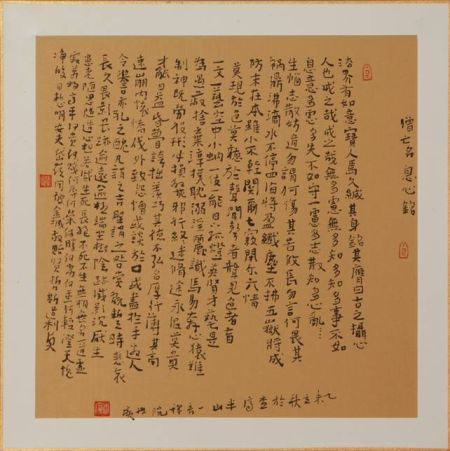 僧亡名息心銘
法界有如意寶人焉久緘其身銘其膺曰古之攝心
人也戒之哉戒之哉無多慮無多知多知多事不如
息意多慮多失不如守一慮多志散知多心亂
生惱志散妨道勿謂何傷其苦悠長勿言何畏其
禍鼎沸滴水不停四海將盈纖塵不拂五嶽將成
防末在本雖小不輕關爾七竅閉爾六情
莫視於色莫聽於聲聞聲者聾見色者盲
一文一藝空中小蚋一伎一能日下孤燈英賢才藝是
為愚蔽捨棄淳樸耽溺淫麗識馬易奔心猿難
制神既勞役形必損斃邪行終迷修途永泥莫貴
才能日益惛瞢誇拙羨巧其德不弘名厚行薄其高
速崩內懷憍伐外致怨憎或談於口或書於手邀人
令譽亦孔之醜凡謂之吉聖謂之咎賞翫暫時悲哀
長久畏影畏跡逾遠逾極端坐樹陰跡滅影沉厭生
患老隨思隨造心想若滅生死長絕不死不生無相無名一道虛
寂萬物齊平何貴何賤何辱何榮何勝何劣何重何輕澄天愧
淨皎日慚明安夫岱嶺同彼金城敬貽賢哲斯道利貞
立秋於查濟半山一音禪院